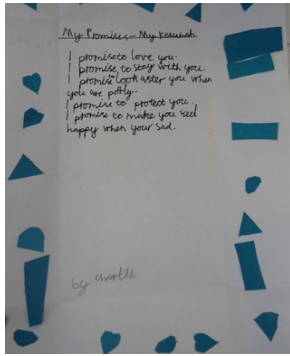 My Promises – My Ketubah
I promise to love you.
I promise to stay with you.
I promise look after you when
you are poorly.
I promise to protect you.
I promise to make you feel
happy when your sad.
by